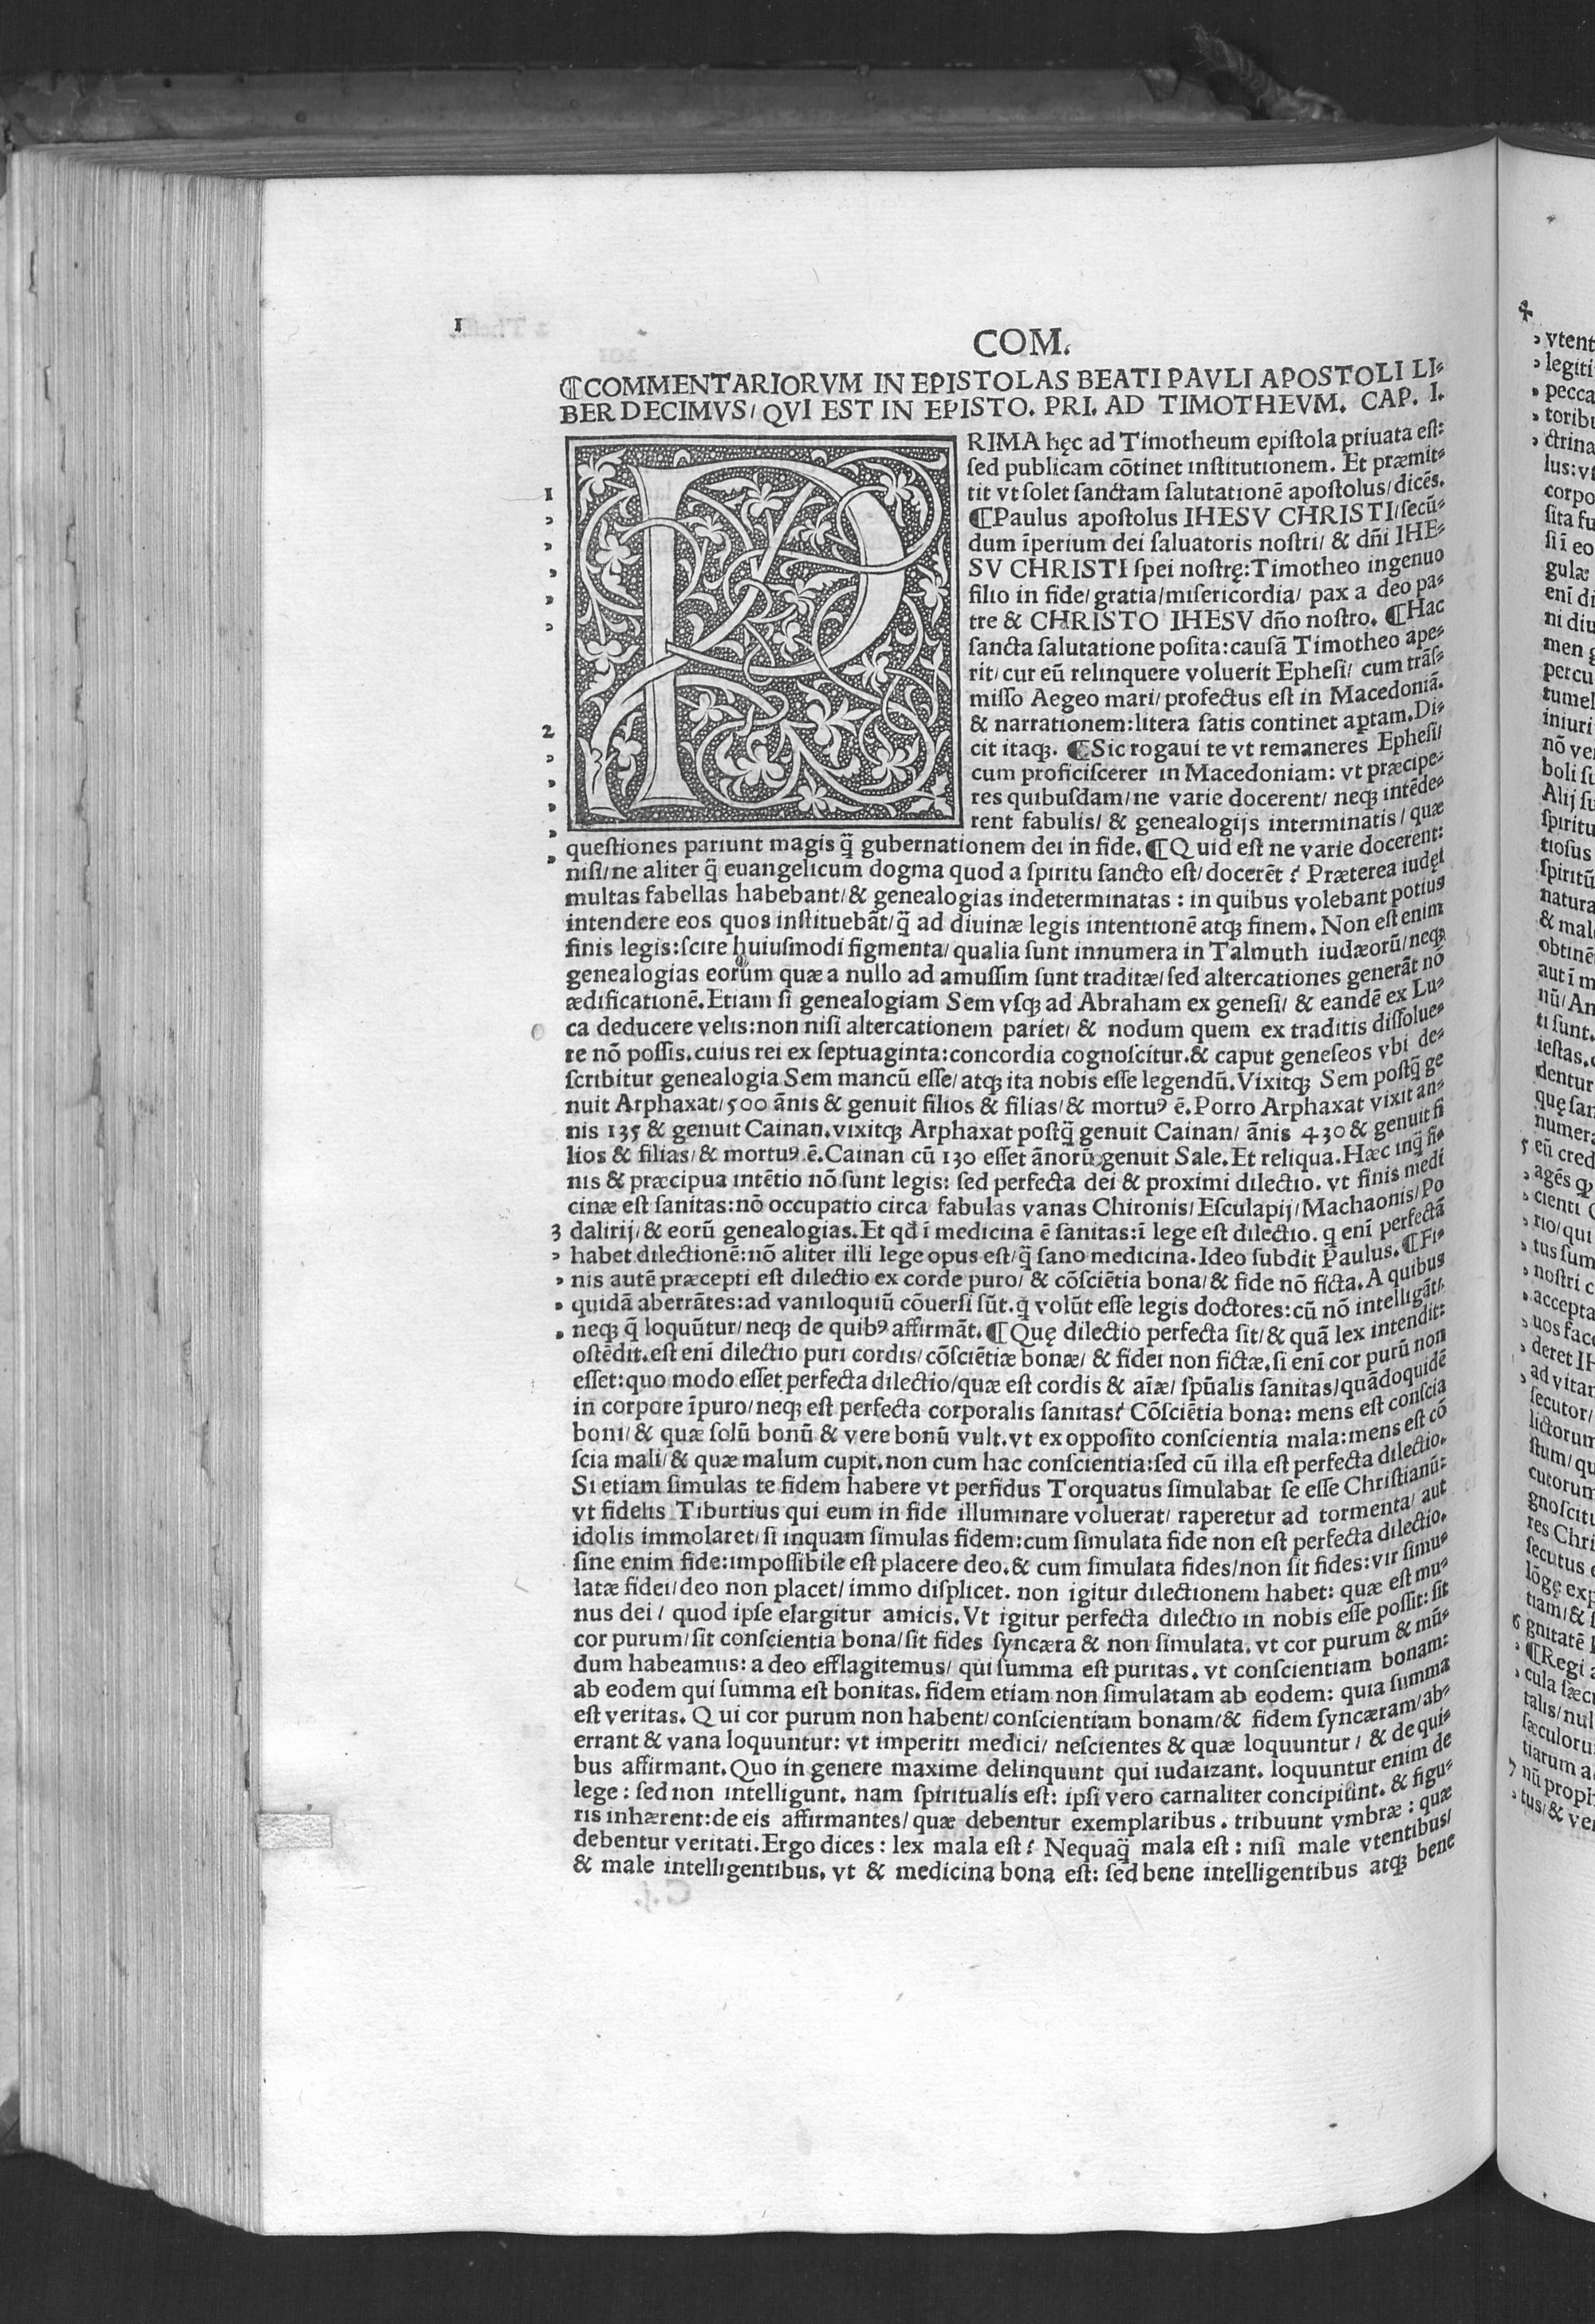 1
COM.
¶COMMENTARIORVM IN EPISTOLAS BEATI PAVLI APOSTOLI LI⸗
BER DECIMVS/ QVI EST IN EPISTO. PRI. AD TIMOTHEVM. CAP. I.
PRIMA hęc ad Timotheum epiſtola priuata eſt:
ſed publicam cõtinet inſtitutionem. Et præmit⸗
1 tit vt ſolet ſanctam ſalutationẽ apoſtolus/ dicẽs.
¶Paulus apoſtolus IHESV CHRISTI/ ſecũ⸗
dum ĩperium dei ſaluatoris noſtri/ & dñi IHE⸗
SV CHRISTI ſpei noſtrę: Timotheo ingenuo
filio in fide/ gratia/ miſericordia/ pax a deo pa⸗
tre & CHRISTO IHESV dño noſtro. ¶Hac
ſancta ſalutatione poſita: cauſã Timotheo ape⸗
rit/ cur eũ relinquere voluerit Epheſi/ cum trãſ⸗
miſſo Aegeo mari/ profectus eſt in Macedoniã.
& narrationem: litera ſatis continet aptam. Di⸗
2 cit itaqꝫ. ¶Sic rogaui te vt remaneres Epheſi/
cum proficiſcerer in Macedoniam: vt præcipe⸗
res quibuſdam/ ne varie docerent/ neqꝫ intẽde⸗
rent fabulis/ & genealogijs interminatis/ quæ
queſtiones pariunt magis q̃ gubernationem dei in fide. ¶Quid eſt ne varie docerent:
niſi/ ne aliter q̃ euangelicum dogma quod a ſpiritu ſancto eſt/ docerẽt? Præterea iudęi
multas fabellas habebant/ & genealogias indeterminatas: in quibus volebant potius
intendere eos quos inſtituebãt/ q̃ ad diuinæ legis intentionẽ atqꝫ finem. Non eſt enim
finis legis: ſcire huiuſmodi figmenta/ qualia ſunt innumera in Talmuth iudæorũ/ neqꝫ
genealogias eorum quæ a nullo ad amuſſim ſunt traditæ/ ſed altercationes generãt nõ
ædificationẽ. Etiam ſi genealogiam Sem vſqꝫ ad Abraham ex geneſi/ & eandẽ ex Lu⸗
ca deducere velis: non niſi altercationem pariet/ & nodum quem ex traditis diſſolue⸗
re nõ poſſis. cuius rei ex ſeptuaginta: concordia cognoſcitur. & caput geneſeos vbi de⸗
ſcribitur genealogia Sem mancũ eſſe/ atqꝫ ita nobis eſſe legendũ. Vixitqꝫ Sem poſtq̃ ge
nuit Arphaxat/ 500 ãnis & genuit filios & filias/ & mortuꝰ ẽ. Porro Arphaxat vixit an⸗
nis 135 & genuit Cainan. vixitqꝫ Arphaxat poſtq̃ genuit Cainan/ ãnis 430 & genuit fi
lios & filias/ & mortuꝰ ẽ. Cainan cũ 130 eſſet ãnorũ genuit Sale. Et reliqua. Hæc inq̃ fi⸗
nis & præcipua intẽtio nõ ſunt legis: ſed perfecta dei & proximi dilectio. vt finis medi
cinæ eſt ſanitas: nõ occupatio circa fabulas vanas Chironis/ Eſculapij/ Machaonis/ Po
3 dalirij/ & eorũ genealogias. Et qd̃ ĩ medicina ẽ ſanitas: ĩ lege eſt dilectio. q enĩ perfectã
habet dilectionẽ: nõ aliter illi lege opus eſt/ q̃ ſano medicina. Ideo ſubdit Paulus. ¶Fi⸗
nis autẽ præcepti eſt dilectio ex corde puro/ & cõſciẽtia bona/ & fide nõ ficta. A quibus
quidã aberrãtes: ad vaniloquiũ cõuerſi ſũt. q̃ volũt eſſe legis doctores: cũ nõ intelligãt/
neqꝫ q̃ loquũtur/ neqꝫ de quibꝰ affirmãt. ¶Quę dilectio perfecta ſit/ & quã lex intendit:
oſtẽdit. eſt enĩ dilectio puri cordis/ cõſciẽtiæ bonæ/ & fidei non fictæ. ſi enĩ cor purũ non
eſſet: quo modo eſſet perfecta dilectio/ quæ eſt cordis & aĩæ/ ſpũalis ſanitas/ quãdoquidẽ
in corpore ĩpuro/ neqꝫ eſt perfecta corporalis ſanitas? Cõſciẽtia bona: mens eſt conſcia
boni/ & quæ ſolũ bonũ & vere bonũ vult. vt ex oppoſito conſcientia mala: mens eſt cõ
ſcia mali/ & quæ malum cupit. non cum hac conſcientia: ſed cũ illa eſt perfecta dilectio.
Si etiam ſimulas te fidem habere vt perfidus Torquatus ſimulabat ſe eſſe Chriſtianũ:
vt fidelis Tiburtius qui eum in fide illuminare voluerat/ raperetur ad tormenta/ aut
idolis immolaret/ ſi inquam ſimulas fidem: cum ſimulata fide non eſt perfecta dilectio.
ſine enim fide: impoſſibile eſt placere deo. & cum ſimulata fides/ non ſit fides: vir ſimu⸗
latæ fidei/ deo non placet/ immo diſplicet. non igitur dilectionem habet: quæ eſt mu⸗
nus dei/ quod ipſe elargitur amicis. Vt igitur perfecta dilectio in nobis eſſe poſſit: ſit
cor purum/ ſit conſcientia bona/ ſit fides ſyncæra & non ſimulata. vt cor purum & mũ⸗
dum habeamus: a deo efflagitemus/ qui ſumma eſt puritas. vt conſcientiam bonam:
ab eodem qui ſumma eſt bonitas. fidem etiam non ſimulatam ab eodem: quia ſumma
eſt veritas. Qui cor purum non habent/ conſcientiam bonam/ & fidem ſyncæram/ ab⸗
errant & vana loquuntur: vt imperiti medici/ neſcientes & quæ loquuntur/ & de qui⸗
bus affirmant. Quo in genere maxime delinquunt qui iudaizant. loquuntur enim de
lege: ſed non intelligunt. nam ſpiritualis eſt: ipſi vero carnaliter concipiũnt. & figu⸗
ris inhærent: de eis affirmantes/ quæ debentur exemplaribus. tribuunt vmbræ: quæ
debentur veritati. Ergo dices: lex mala eſt? Nequaq̃ mala eſt: niſi male vtentibus/
& male intelligentibus. vt & medicina bona eſt: ſed bene intelligentibus atqꝫ bene